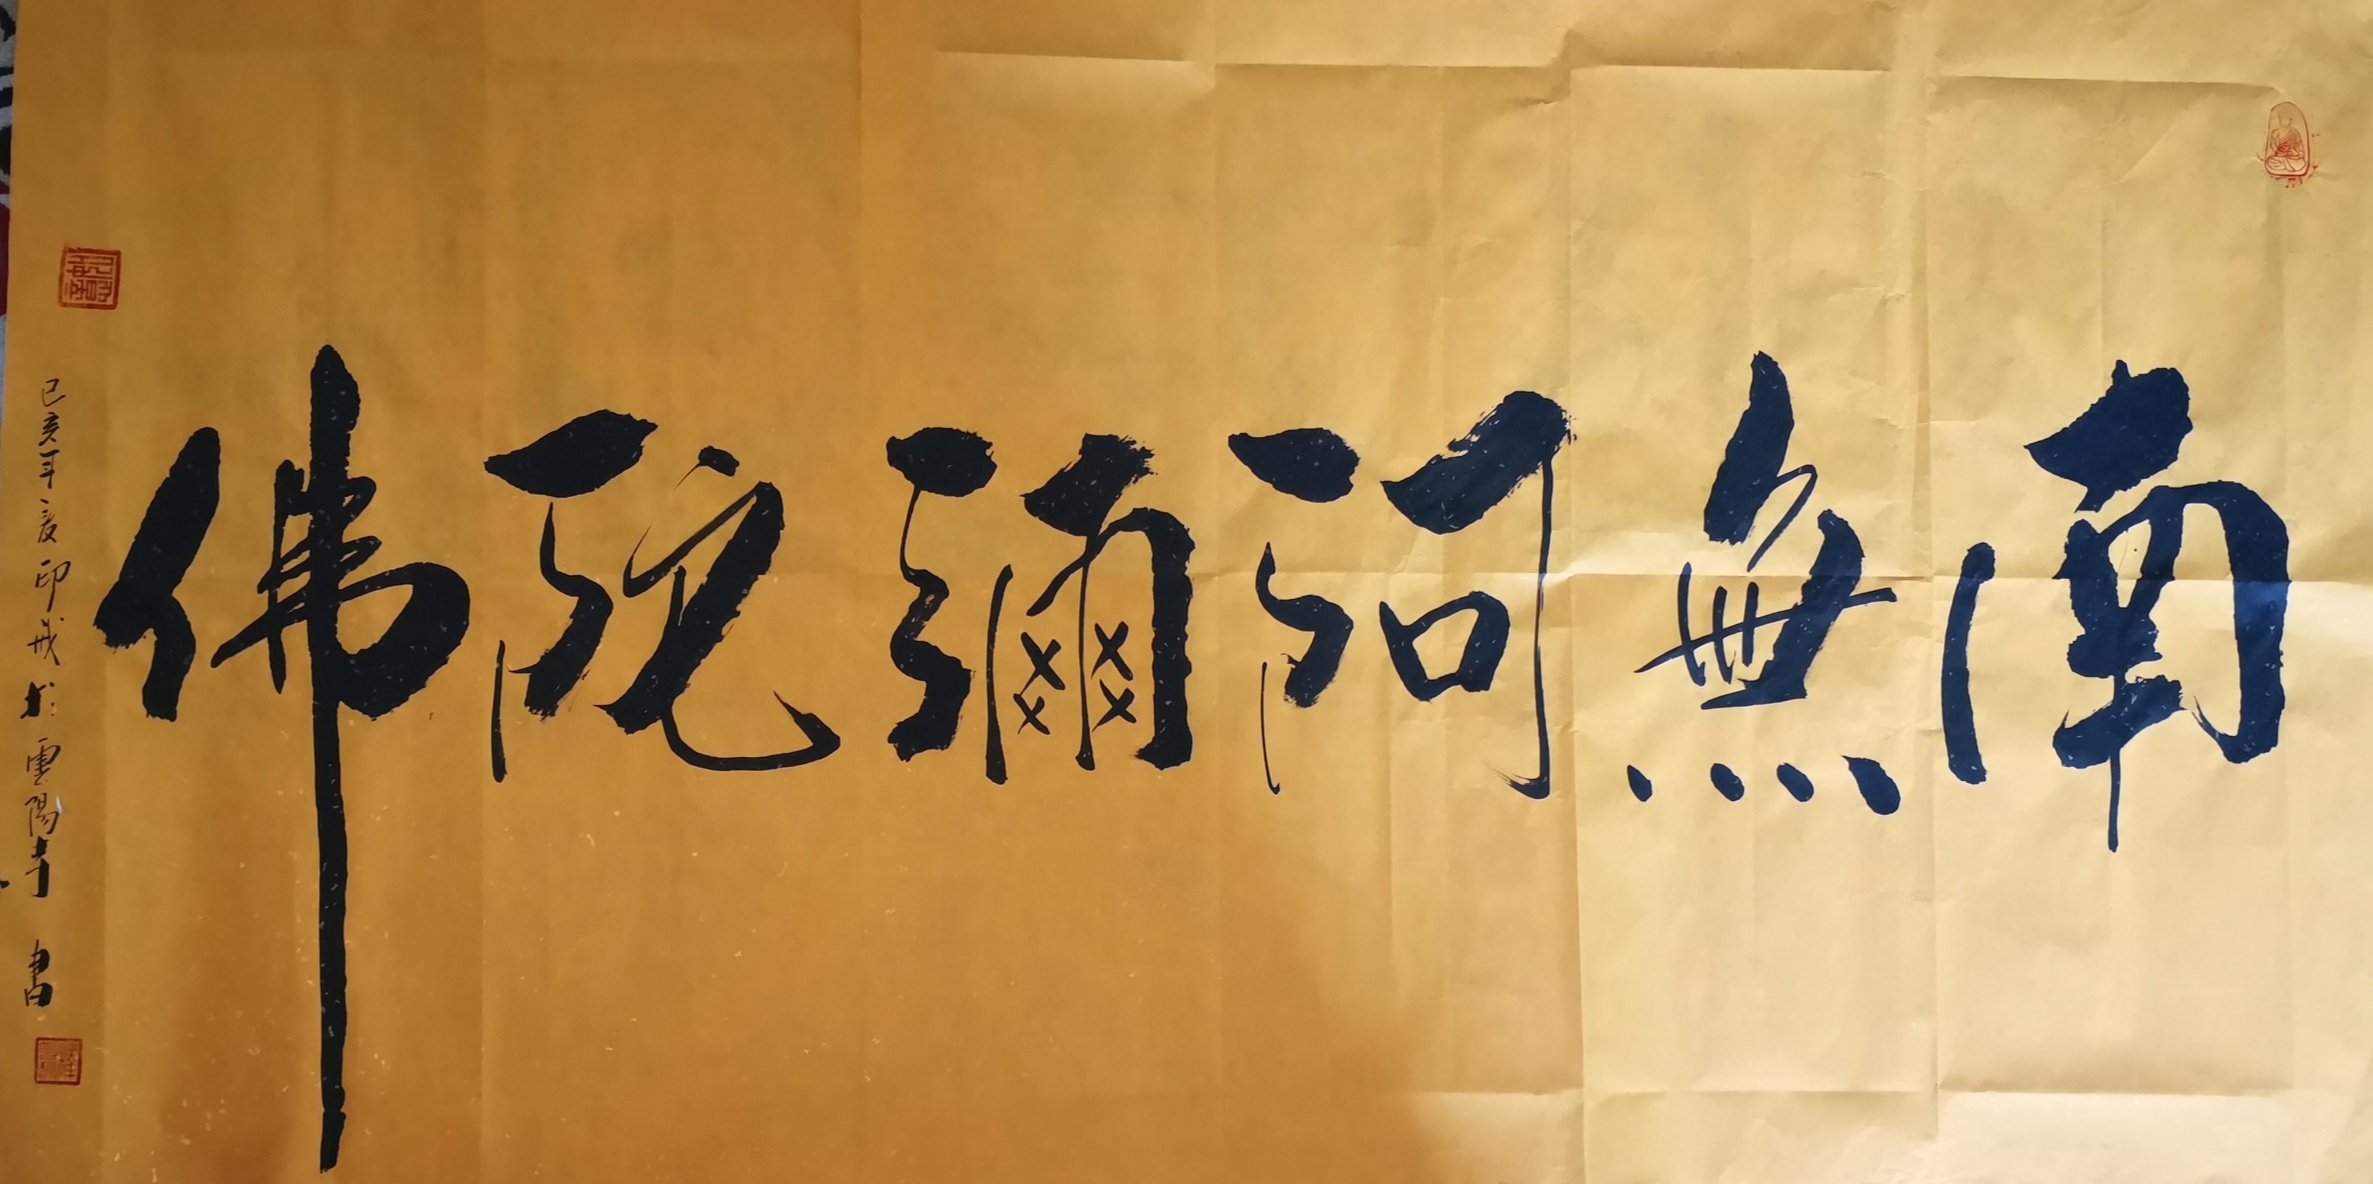 南無阿彌陀佛
己亥年夏印戒於雲陽寺 書